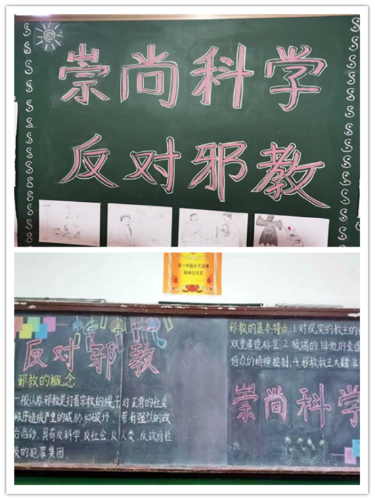 崇尚科学
反对邪教
反对邪教
邪教的概念
一般认为,邪教是打着宗教的幌子,对正常的社会
秩序造成严重的威胁和破坏,带有强烈的政
治色彩,具有反科学、反社会、反人类、反政府性
质的犯罪集团。
邪教的基本特点:1.对现实的教主的
2.极端的排他的
信众的精神控制,4.邪教教主大肆
崇尚科学